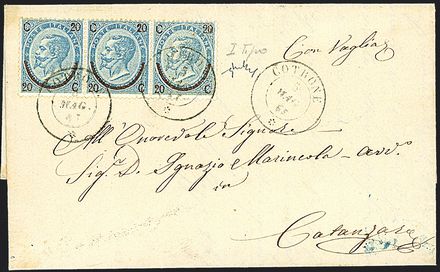 C 20 20 C
POSTE ITALIANE
20 C C 20
I Tipo
Con Vaglia
COTRONE
5
MAG
65
All'Onorevole Signore
Sig. D. Ignazio Marincola - avv.º
in
Catanzaro